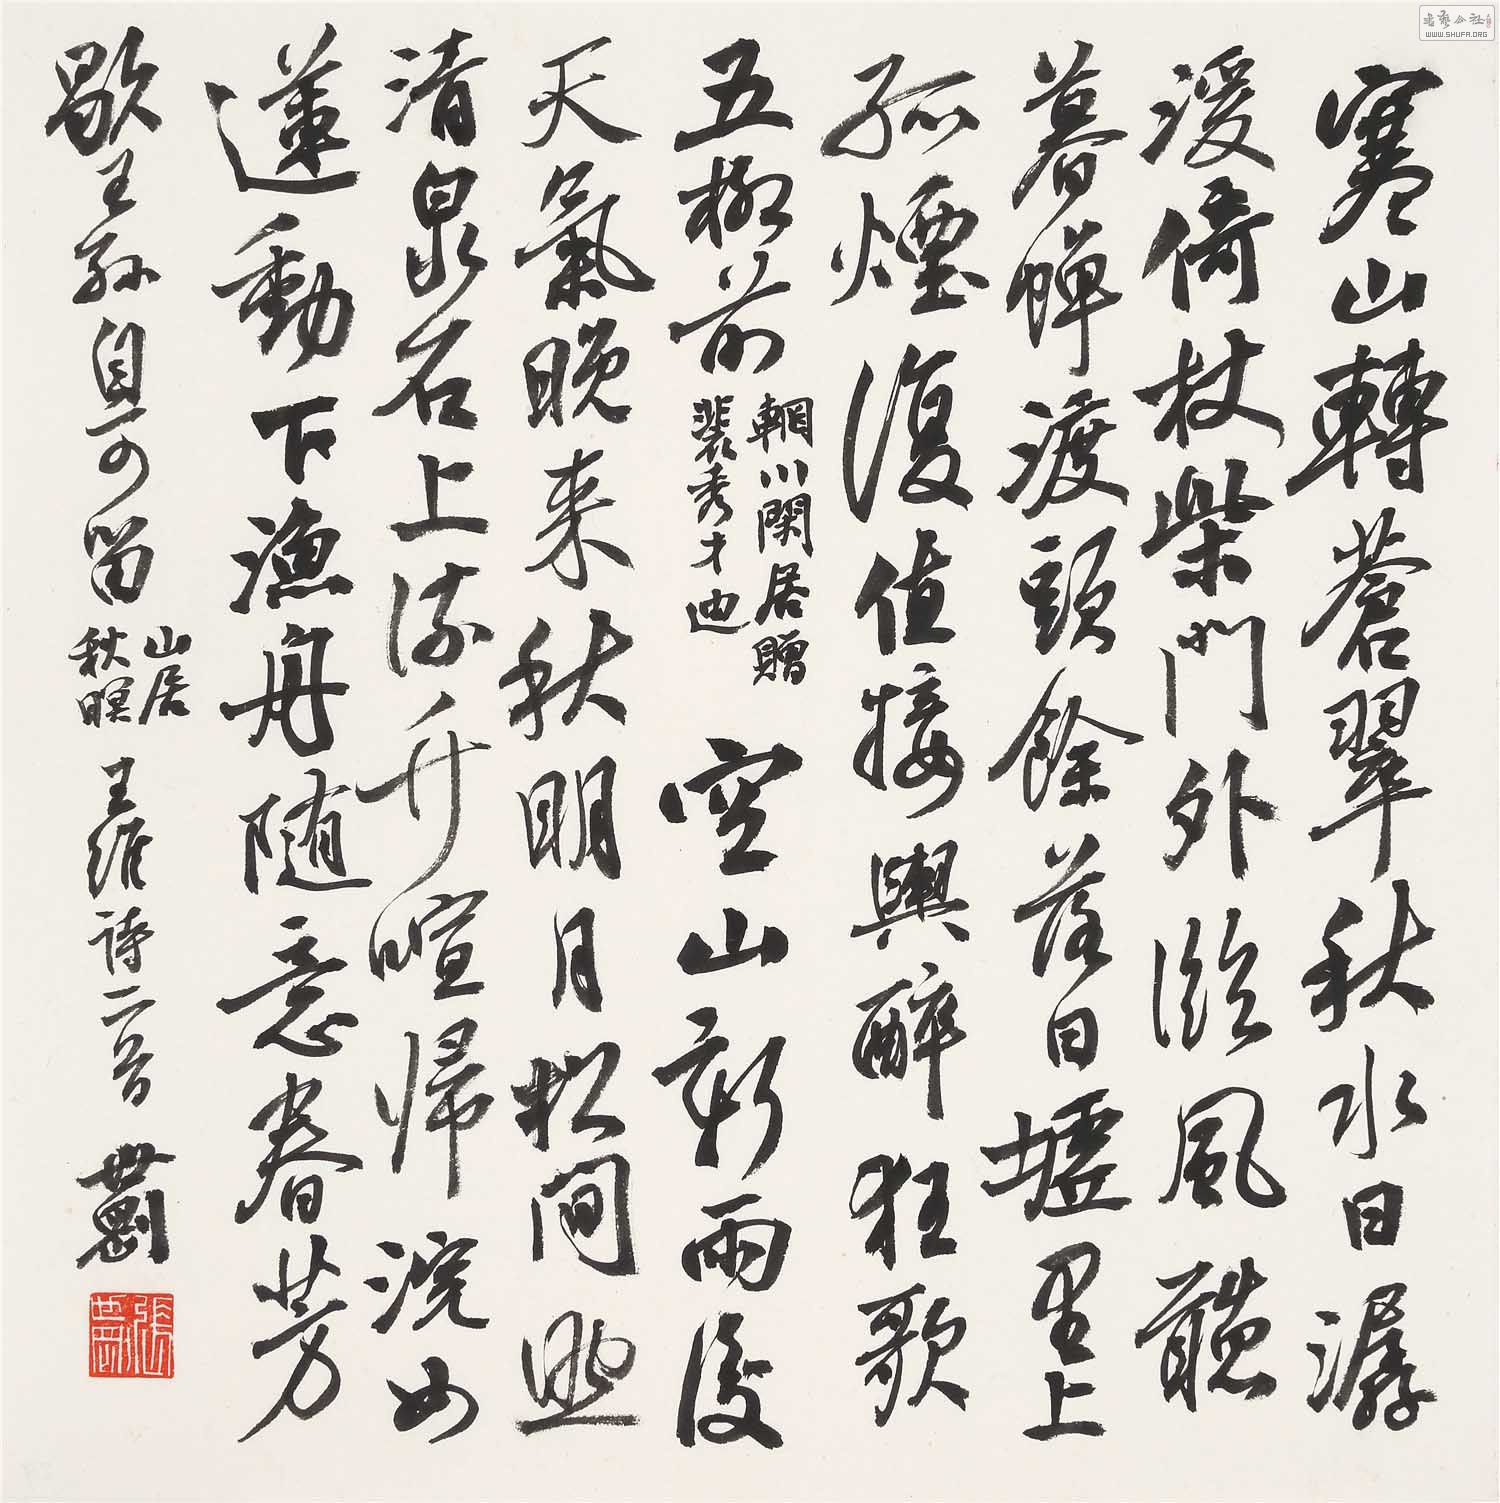 寒山轉蒼翠秋水日潺
湲倚杖柴門外臨風聽
暮蟬渡頭餘落日墟里上
孤煙復值接輿醉狂歌
五柳前
輞川閑居贈
裴秀才迪
空山新雨後
天氣晚来秋明月松間照
清泉石上流竹喧帰浣女
蓮動下漁舟随意春芳
歇王孫自可留
山居
秋暝
王維詩二首
世剛
張世剛
書藝公社
WWW.SHUFA.ORG